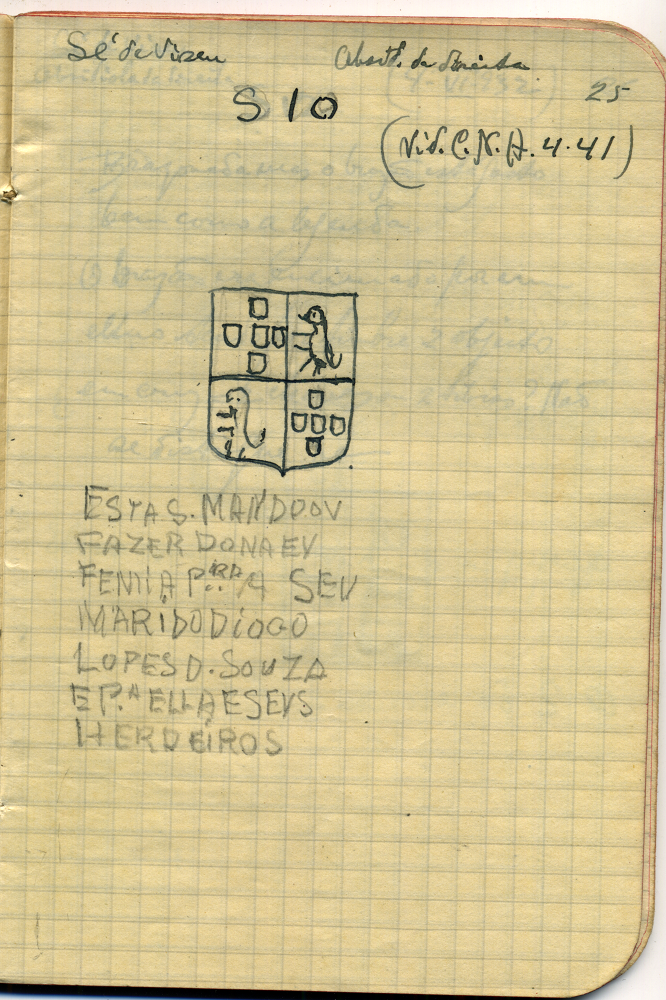 Sé de Viseu
Absid. da Direita
25
S10
(Vid. C. N. A. 4.41)
ESTA S. MANDOOV
FAZER DONA EV
FENIIA P.RRA/A SEV
MARIDO DIOGO
LOPES D. SOUZA
E P.A ELLA E SEVS
HERDEIROS